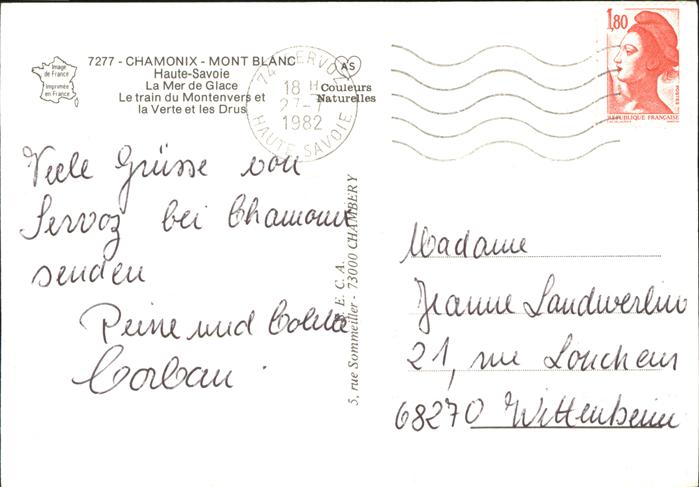 Image
de France
Imprimée
en France
7277 - CHAMONIX - MONT BLANC
Haute-Savoie
La Mer de Glace
Le train du Montenvers et
la Verte et les Drus
AS
Couleurs
Naturelles
74 SERVOZ
18 H
27-7
1982
HAUTE-SAVOIE
1,80
POSTES
REPUBLIQUE FRANÇAISE
Viele Grüsse von
Servoz bei Chamonix
senden
und
Corbau.
E. C. A.
5, rue Sommeiller - 73000 CHAMBERY
Madame
Jeanne Landwerlin
21, rue Loucheur
68270 Wittenheim